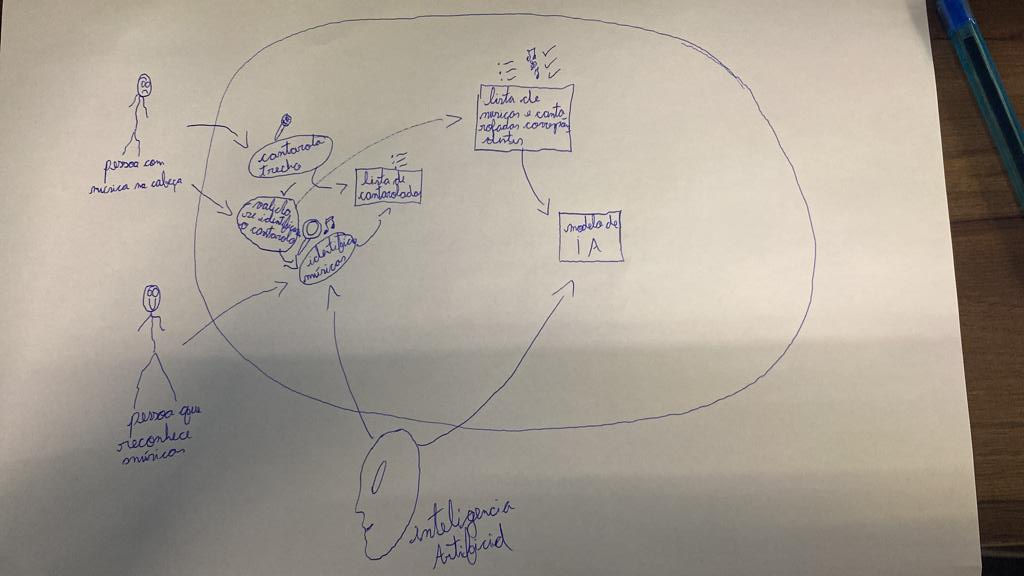 pessoa com
música na cabeça
cantarola
trecho
lista de
cantarolados
valida
se identificou
o cantarolo
identifica
músicas
lista de
músicas e canta
roladas correspon
dentes
modelo de
IA
pessoa que
reconhece
músicas
inteligencia
Artificial